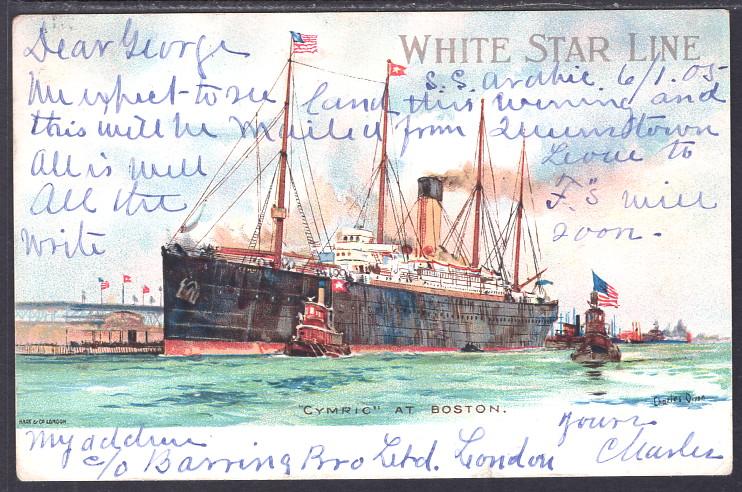 Dear George
WHITE STAR LINE
S.S. 6/1.05
We expect to see land this evening and
this will be Mailed from Queenstown
All is well Love to
All the F.'s will
write soon.
"CYMRIC" AT BOSTON.
Charles Dixon
My address yours
c/o Barring Bro Ltd. London Charles